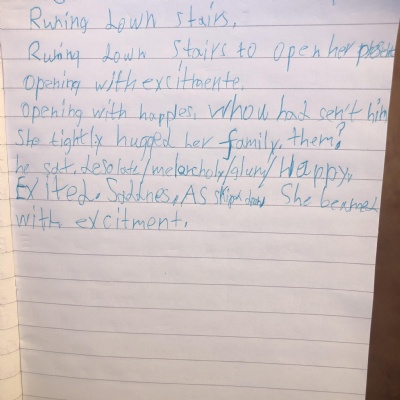 Runing down stairs.
Runing down stairs to open her presents
opening with excitmente.
opening with happles. Whow had sen't him
She tightly hugged her family, them?
he sat. desolate/melancholy/glum/ Happy.
Exited. Saddnes. As skipt down She beamed
with excitment.